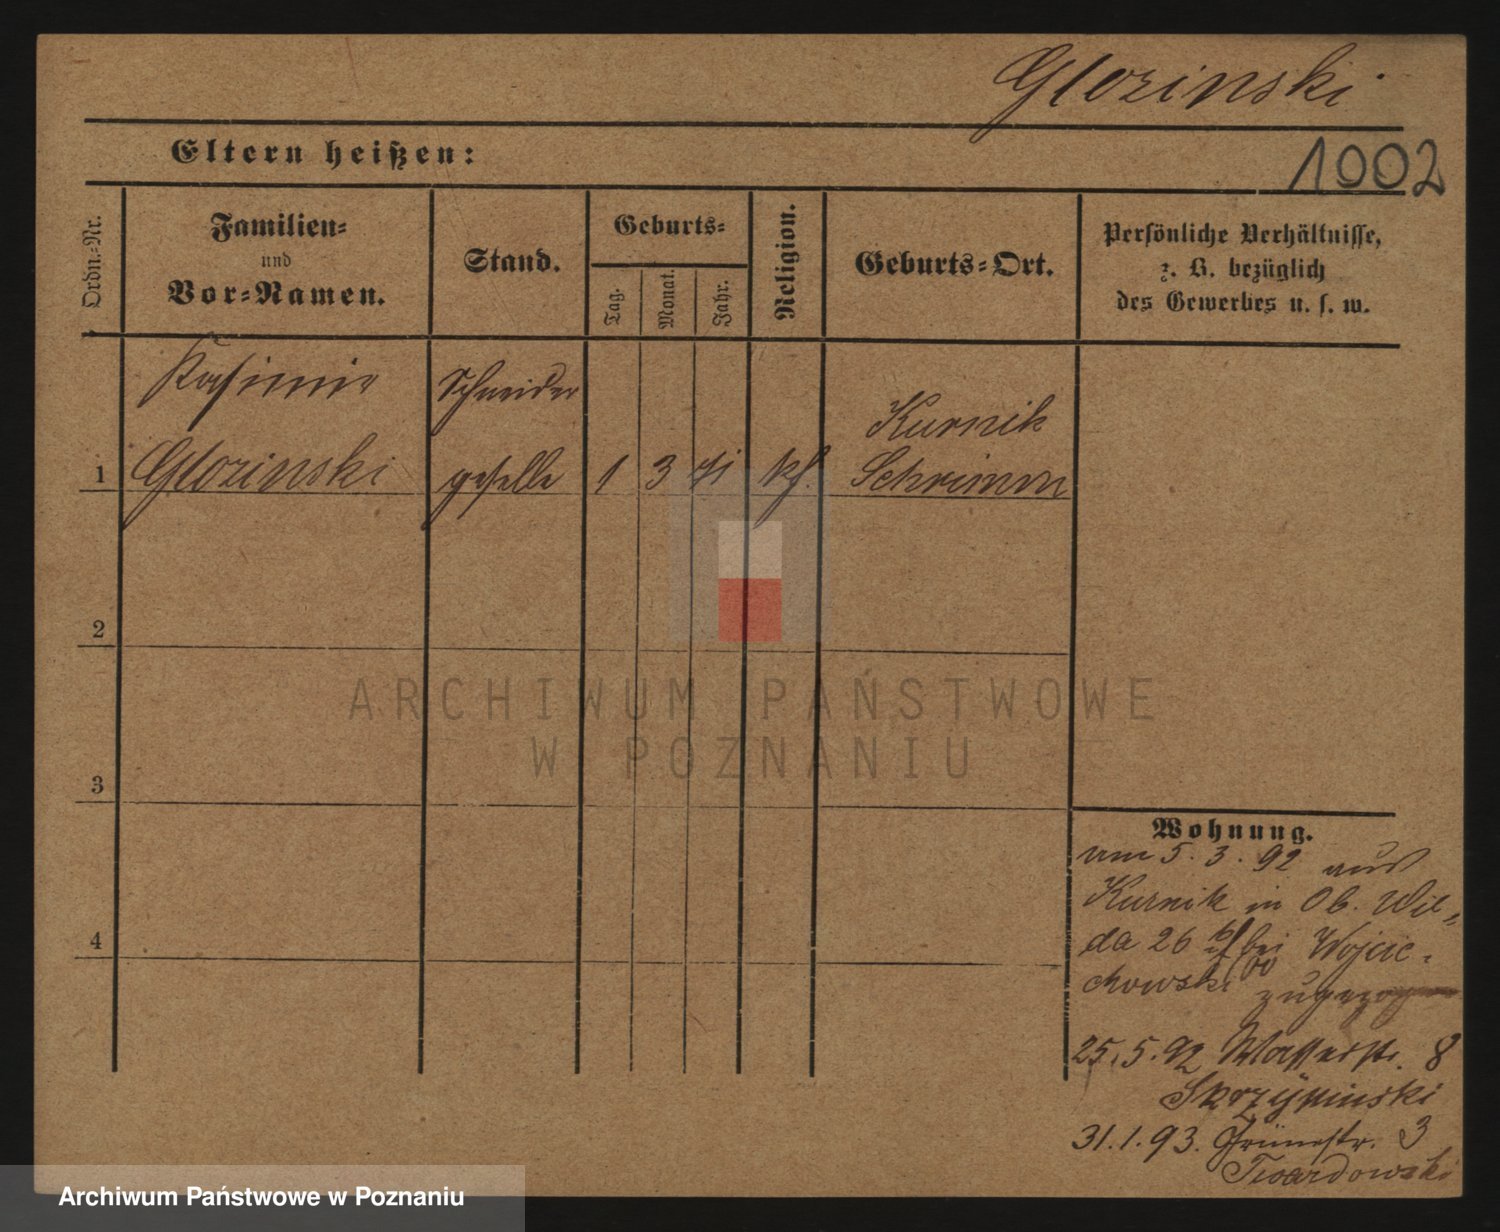 Glozinski
Eltern heißen:
1002
Ordn.-Nr.
Familien-
und
Vor-Namen.
Stand.
Geburts-
Tag.
Monat.
Jahr.
Religion.
Geburts-Ort.
Persönliche Verhältnisse,
z. B. bezüglich
des Gewerbes u. s. w.
Kasimir
Schneider
Kurnik
1 Glozinski geselle 1 3 71 kf. Schrimm
2
3
4
ARCHIWUM PAŃSTWOWE
W POZNANIU
Wohnung.
am 5. 3. 92 aus
Kurnik in Ob. Wil-
da 26 bei Wojcie-
chowski zugezogen
25. 5. 92 Wasserstr. 8
Skrzypinski
31. 1. 93. Grünestr. 3
Twardowski
Archiwum Państwowe w Poznaniu